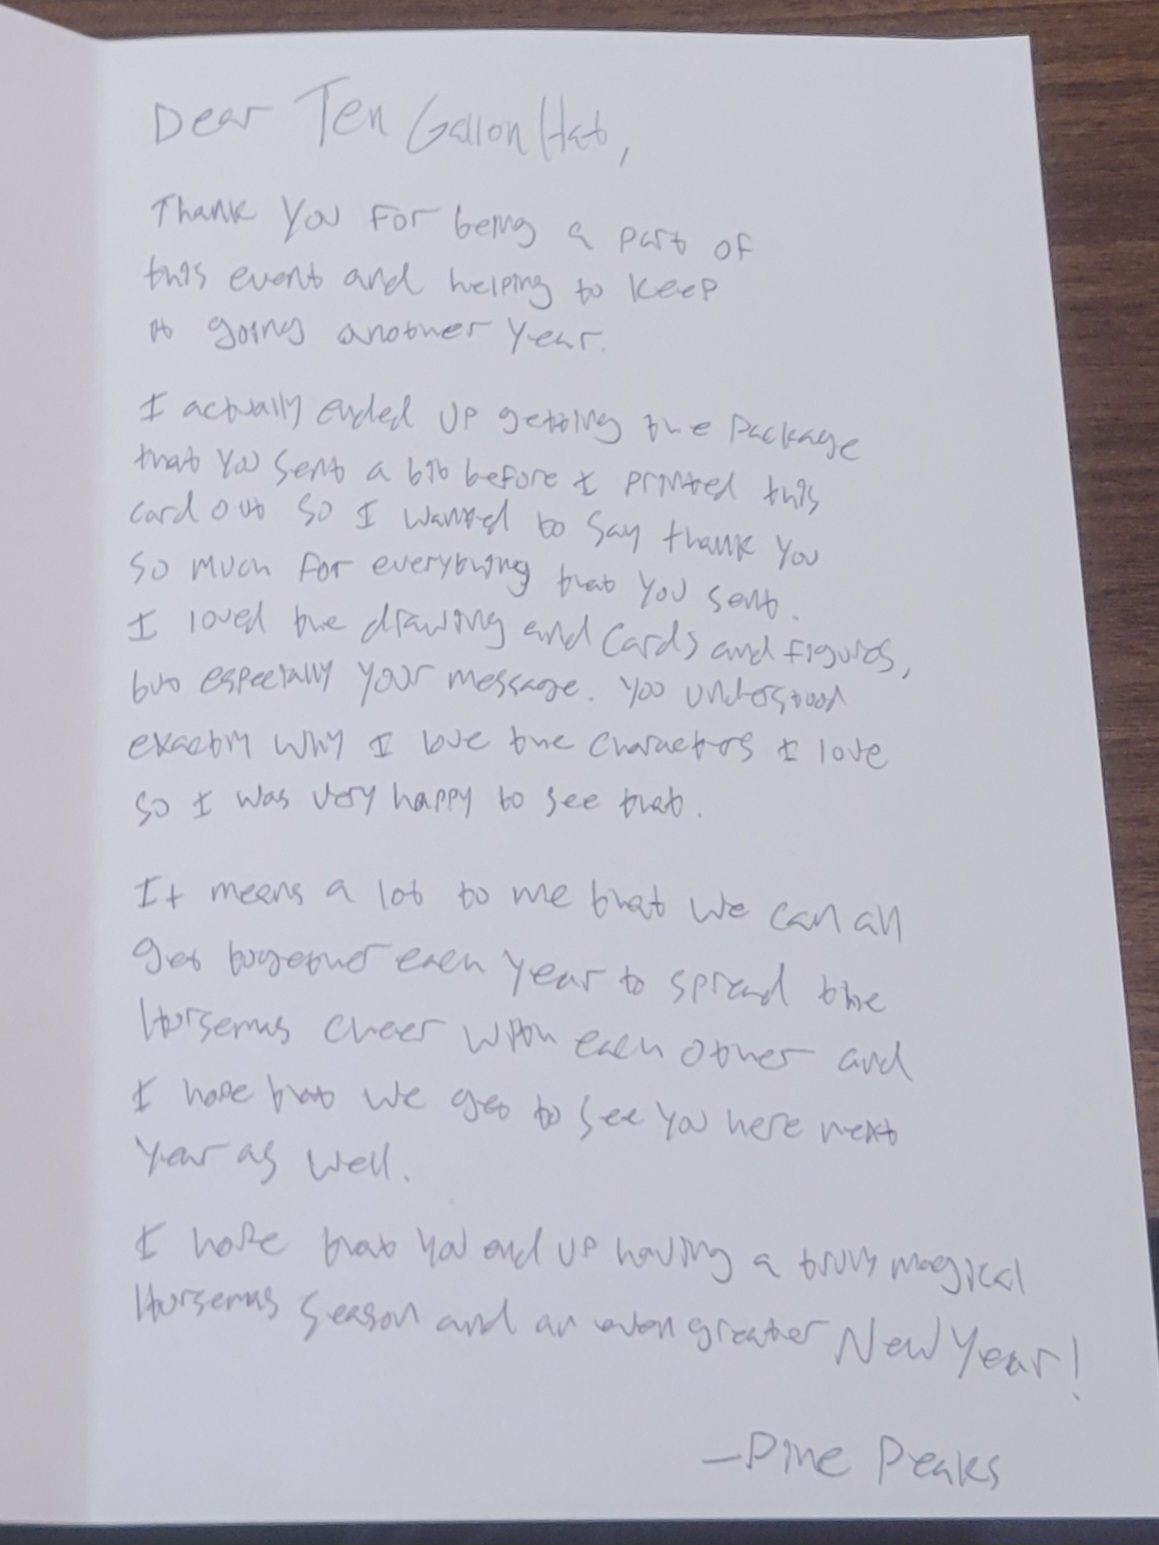 Dear Ten Gallon Hat,
Thank you for being a part of
this event and helping to keep
it going another year.
I actually ended up getting the package
that you sent a bit before I printed this
card out so I wanted to say thank you
so much for everything that you sent.
I loved the drawing and cards and figures,
but especially your message. You understood
exactly why I love the characters I love
so I was very happy to see that.
It means a lot to me that we can all
get together each year to spread the
Horsemas cheer upon each other and
I hope that we get to see you here next
year as well.
I hope that you end up having a truly magical
Horsemas season and an even greater New Year!
-Pine Peaks